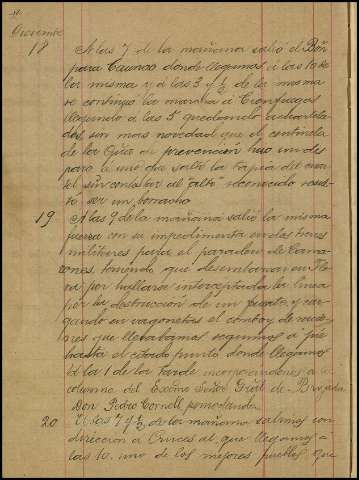 Diciembre
18 A las 7 de la mañana salió el Bón
para Caunao donde llegamos á las 10 de
la misma y á las 3 y ½ de la misma
se continuó la marcha á Cienfuegos
llegando a las 5 quedando acuartela
dos, sin mas novedad que el centinela
de la Guª de prevención hizo un dis
paro a uno que saltó la tapia del cuar
tel sin contestar al "alto" reconocido resul
tó ser un borracho
19 A las 9 de la mañana salió la misma
fuerza con su impedimenta en dos trenes
militares para el paradero de Cama
rones, teniendo que desembarcar en
por hallarse interceptada la linea
por la destrucción de un puente, y car
gando en vagonetas el convoy de
res que llebabamos seguimos á pié
hasta el citado punto donde llegamos
á la 1 de la tarde incorporandonos a la
columna del Excmo Señor Gral de Brigada
Don Pedro Cornell
20 A las 7 y ½ de la mañana salimos con
dirección a Cruces al que llegamos a
las 10, uno de los mejores pueblos que